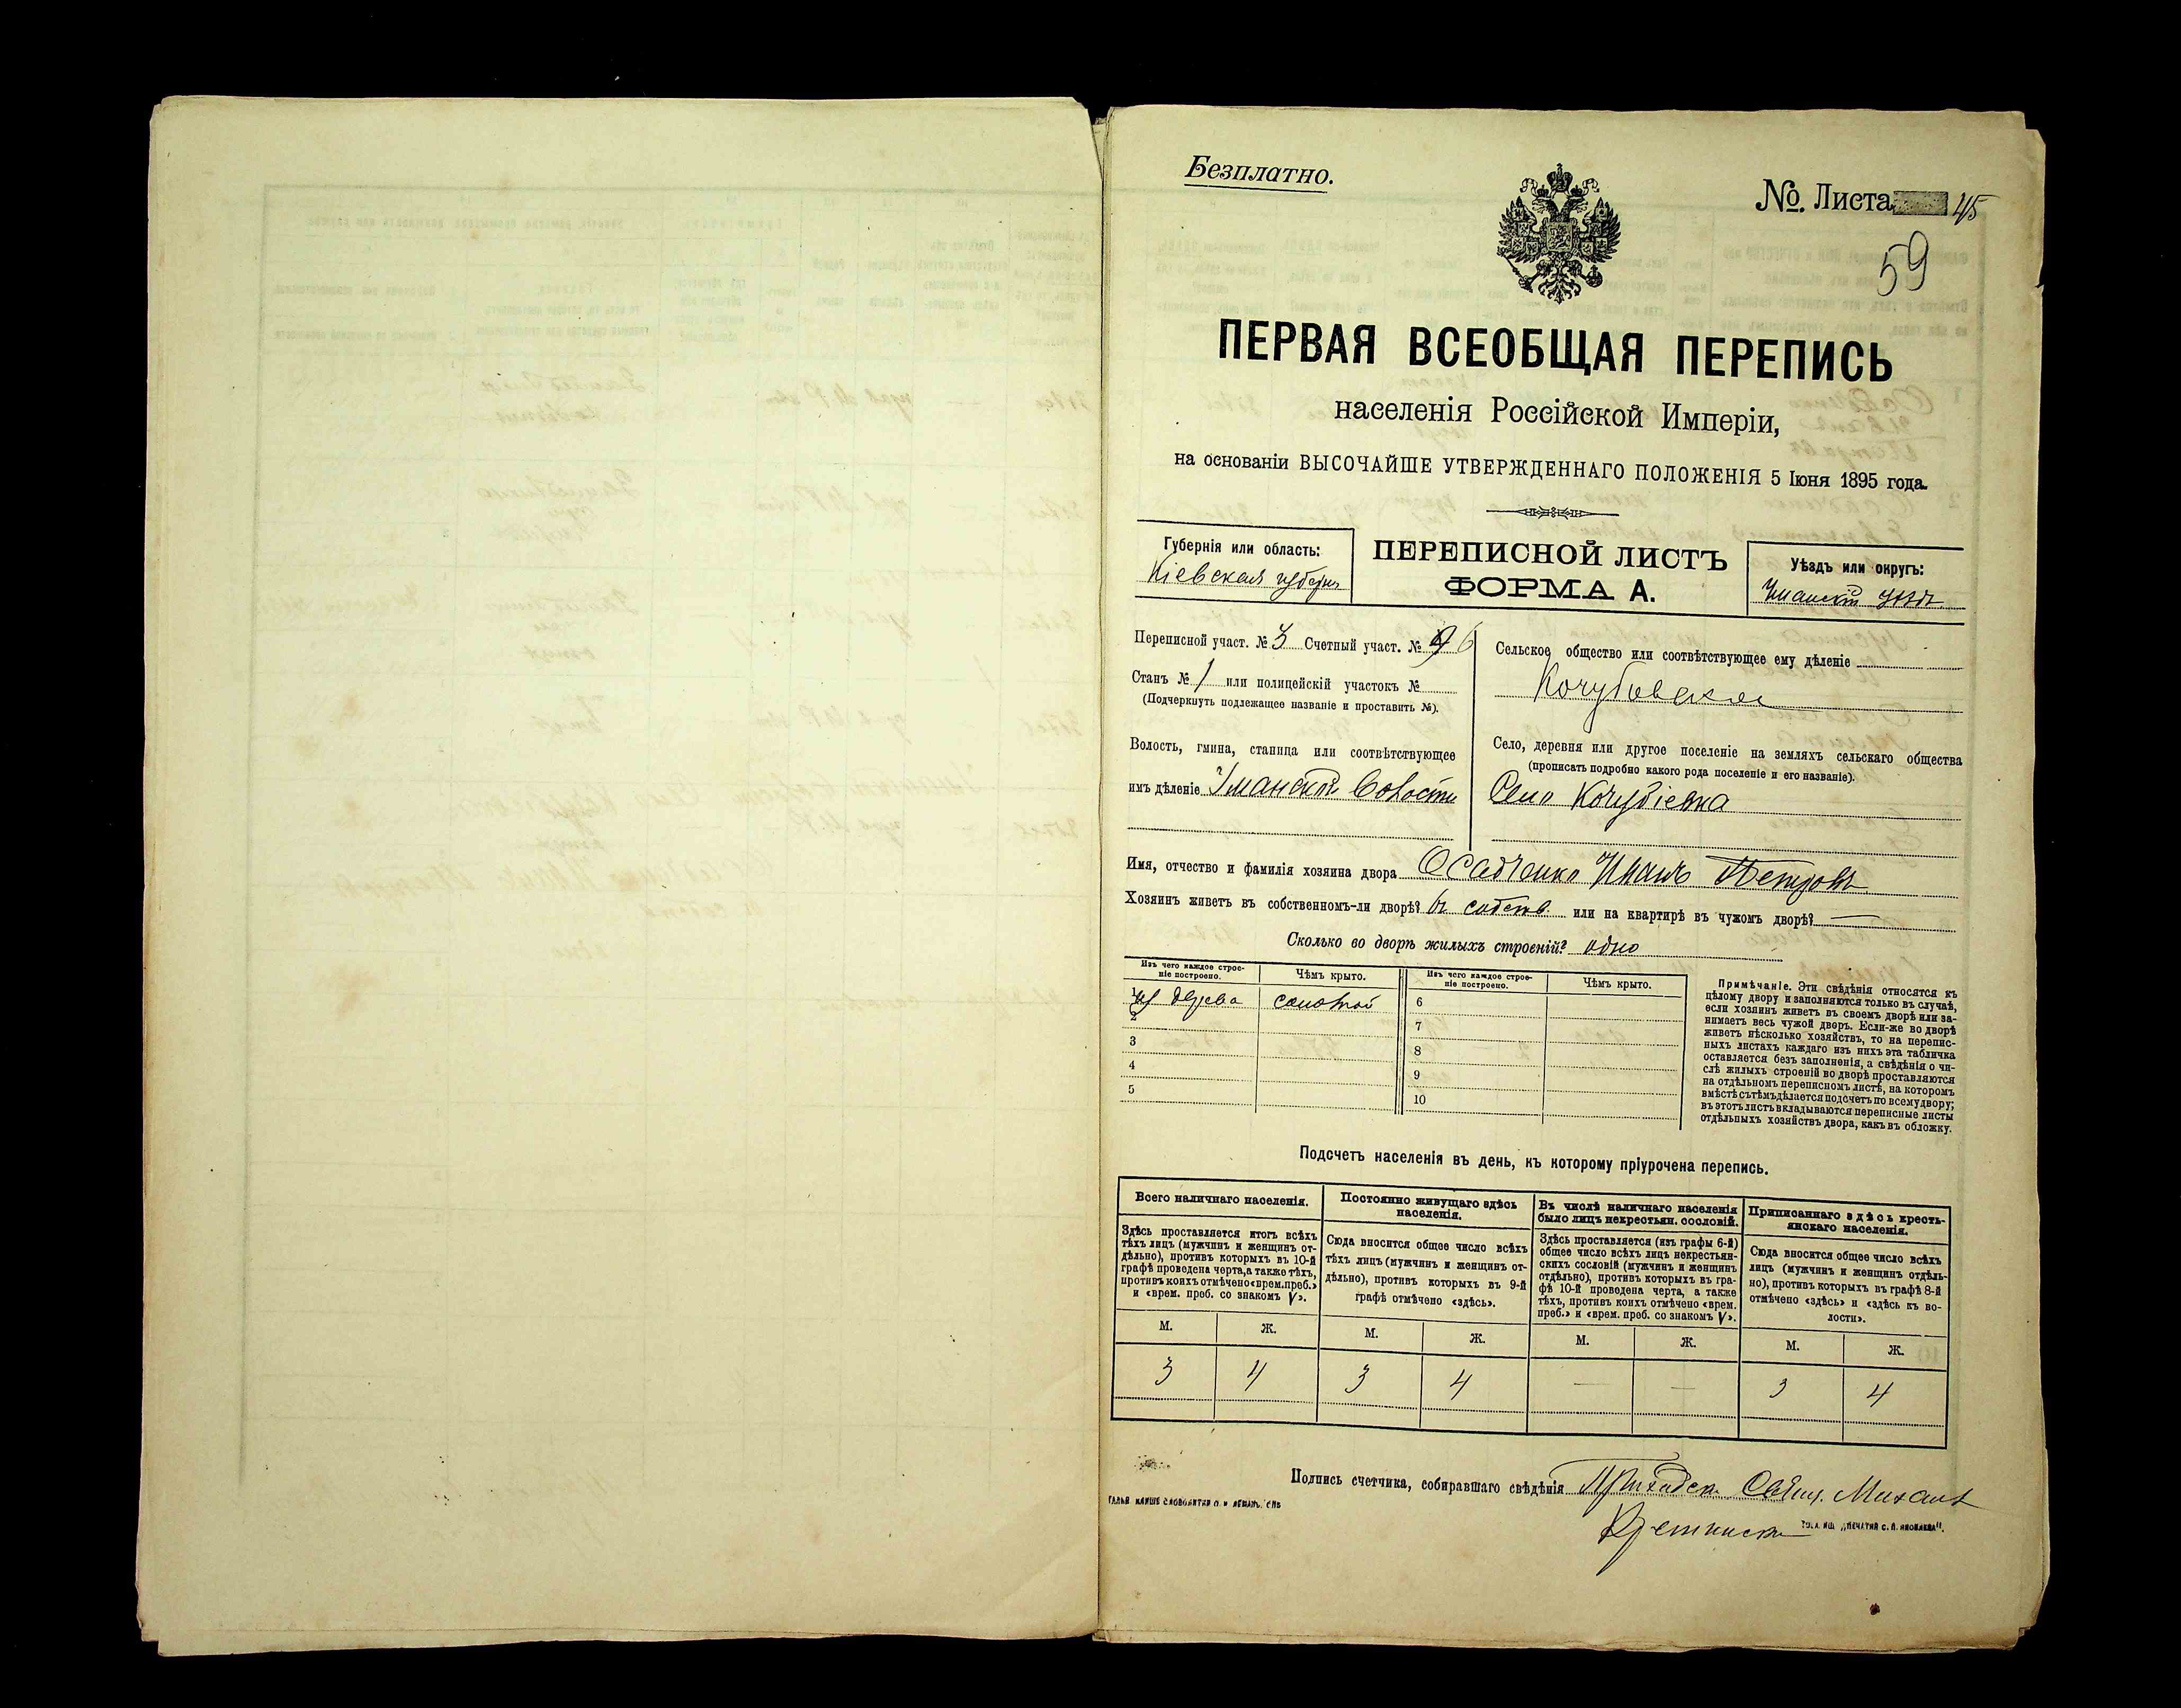 Безплатно.
№. Листа 45
59
ПЕРВАЯ ВСЕОБЩАЯ ПЕРЕПИСЬ
населенія Россійской Имперіи,
на основаніи ВЫСОЧАЙШЕ УТВЕРЖДЕННАГО ПОЛОЖЕНІЯ 5 Іюня 1895 года.
Губернія или область:
Кіевская губерн
ПЕРЕПИСНОЙ ЛИСТЪ
ФОРМА А.
Уѣздъ или округъ:
Уманскій уѣздъ
Переписной участ. № 3 Счетный участ. № 6
Станъ № 1 или полицейскій участокъ №
(Подчеркнуть подлежащее названіе и проставить №).
Волость, гмина, станица или соотвѣтствующее
имъ дѣленіе Уманской волости
Сельское общество или соотвѣтствующее ему дѣленіе
Кочубіевское
Село, деревня или другое поселеніе на земляхъ сельскаго общества
(прописать подробно какого рода поселеніе и его названіе).
Село Кочубіевка
Имя, отчество и фамилія хозяина двора Осадченко Иванъ Петровъ
Хозяинъ живетъ въ собственномъ-ли дворѣ? въ собств. или на квартирѣ въ чужомъ дворѣ? —
Сколько во дворѣ жилыхъ строеній? одно
Изъ чего каждое строе-
ніе построено.
Чѣмъ крыто.
Изъ чего каждое строе-
ніе построено.
Чѣмъ крыто.
1 изъ дерева соломой 6
2 7
3 8
4 9
5 10
Примѣчаніе. Эти свѣдѣнія относятся къ
цѣлому двору и заполняются только въ случаѣ,
если хозяинъ живетъ въ своемъ дворѣ или за-
нимаетъ весь чужой дворъ. Если-же во дворѣ
живетъ нѣсколько хозяйствъ, то на перепис-
ныхъ листахъ каждаго изъ нихъ эта табличка
оставляется безъ заполненія, а свѣдѣнія о чи-
слѣ жилыхъ строеній во дворѣ проставляются
на отдѣльномъ переписномъ листѣ, на которомъ
вмѣстѣ съ тѣмъ дѣлается подсчетъ по всему двору;
въ этотъ листъ вкладываются переписные листы
отдѣльныхъ хозяйствъ двора, какъ въ обложку.
Подсчетъ населенія въ день, къ которому пріурочена перепись.
Всего наличнаго населенія.
Здѣсь проставляется итогъ всѣхъ
тѣхъ лицъ (мужчинъ и женщинъ от-
дѣльно), противъ которыхъ въ 10-й
графѣ проведена черта, а также тѣхъ,
противъ коихъ отмѣчено «врем. преб.»
и «врем. преб. со знакомъ V».
Постоянно живущаго здѣсь
населенія.
Сюда вносится общее число всѣхъ
тѣхъ лицъ (мужчинъ и женщинъ от-
дѣльно), противъ которыхъ въ 9-й
графѣ отмѣчено «здѣсь».
Въ числѣ наличнаго населенія
было лицъ некрестьян. сословій.
Здѣсь проставляется (изъ графы 6-й)
общее число всѣхъ лицъ некрестьян-
скихъ сословій (мужчинъ и женщинъ
отдѣльно), противъ которыхъ въ гра-
фѣ 10-й проведена черта, а также
тѣхъ, противъ коихъ отмѣчено «врем.
преб.» и «врем. преб. со знакомъ V».
Приписаннаго здѣсь кресть-
янскаго населенія.
Сюда вносится общее число всѣхъ
лицъ (мужчинъ и женщинъ отдѣль-
но), противъ которыхъ въ графѣ 8-й
отмѣчено «здѣсь» и «здѣсь къ во-
лости».
М. Ж. М. Ж. М. Ж. М. Ж.
3 4 3 4 — — 3 4
Подпись счетчика, собиравшаго свѣдѣнія Приходск. Свящ. Михаил